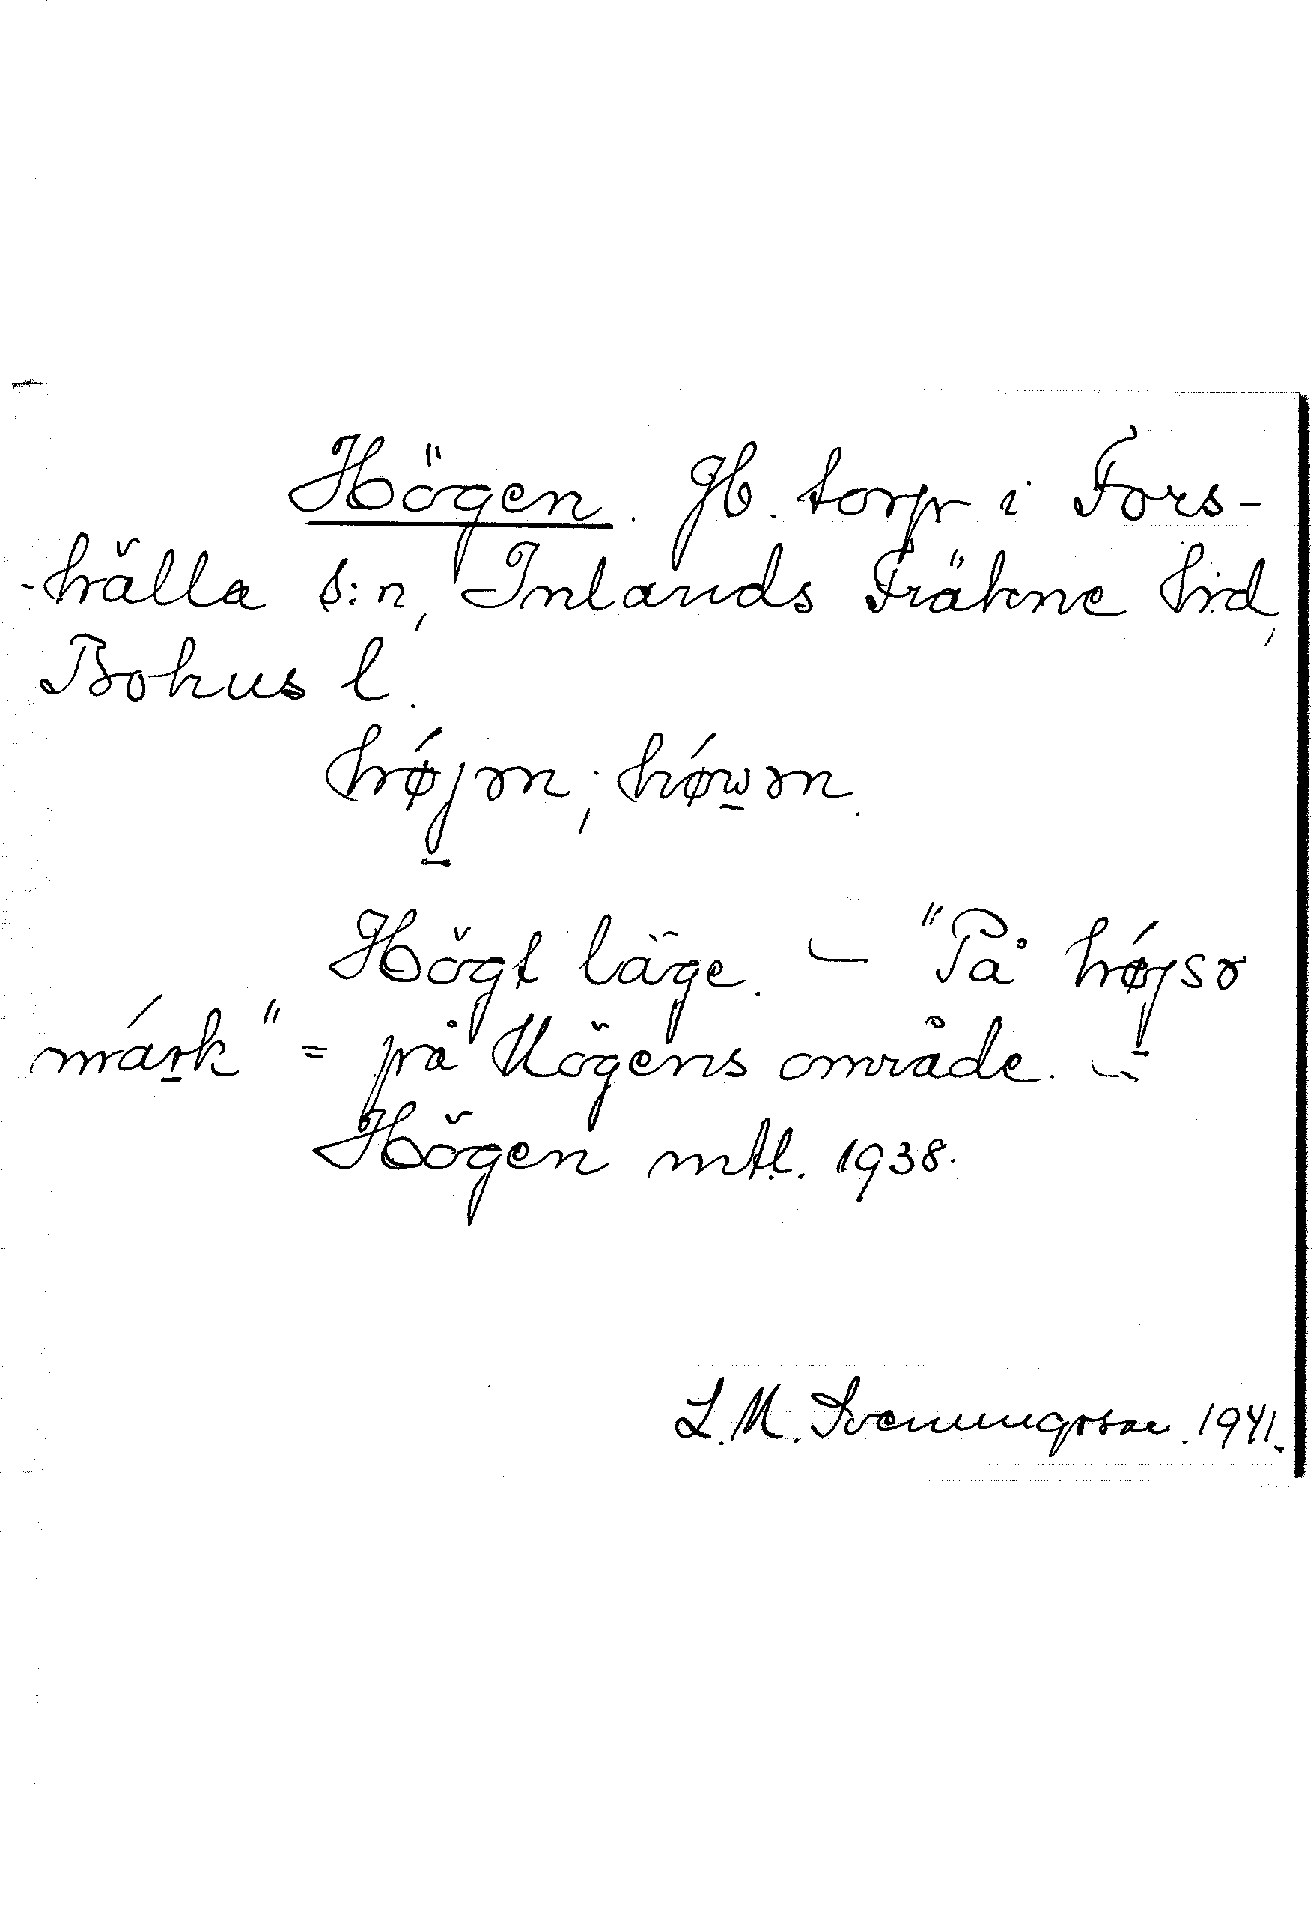 Högen. Jb. torp i Fors-
-hälla s:n, Inlands Fräkne hrd,
Bohus l.
hǿjən; hǿwən.
Högt läge. — "På hǿjsə
márk" = på Högens område. —
Högen mtl. 1938.
L. M. Svenungsson. 1941.